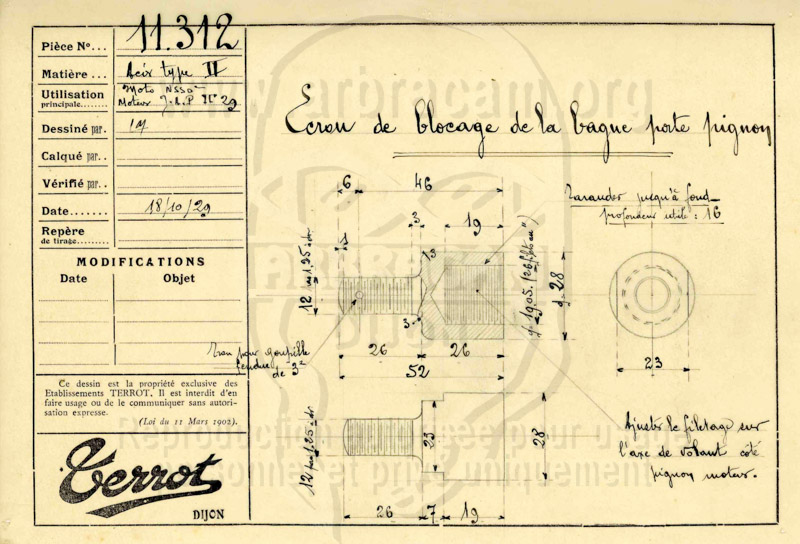 Pièce Nº... 11.312
Matière... Acier type II
Utilisation principale........ Moto NSSO
Moteur J.A.P. 29
Dessiné par.
Calqué par..
Vérifié par..
Date....... 18/10/29
Repère
de tirage.....
MODIFICATIONS
Date Objet
Ce dessin est la propriété exclusive des
Etablissements TERROT. Il est interdit d'en
faire usage ou de le communiquer sans autori-
sation expresse.
(Loi du 11 Mars 1902).
Terrot
DIJON
Ecrou de blocage de la bague porte pignon
Tarauder jusqu'à fond
profondeur utile : 16
6 46
3 19
3
12 pas 1.25
3
g. 19.05
d. 28
26 26
52
23
Trou pour goupille
fendue de 3
12 pas 1.25
23
28
26 7 19
Ajuster le filetage sur
l'axe de volant côté
pignon moteur.
www.arbracam.org
Reproduction autorisée pour usage
personnel et privé uniquement